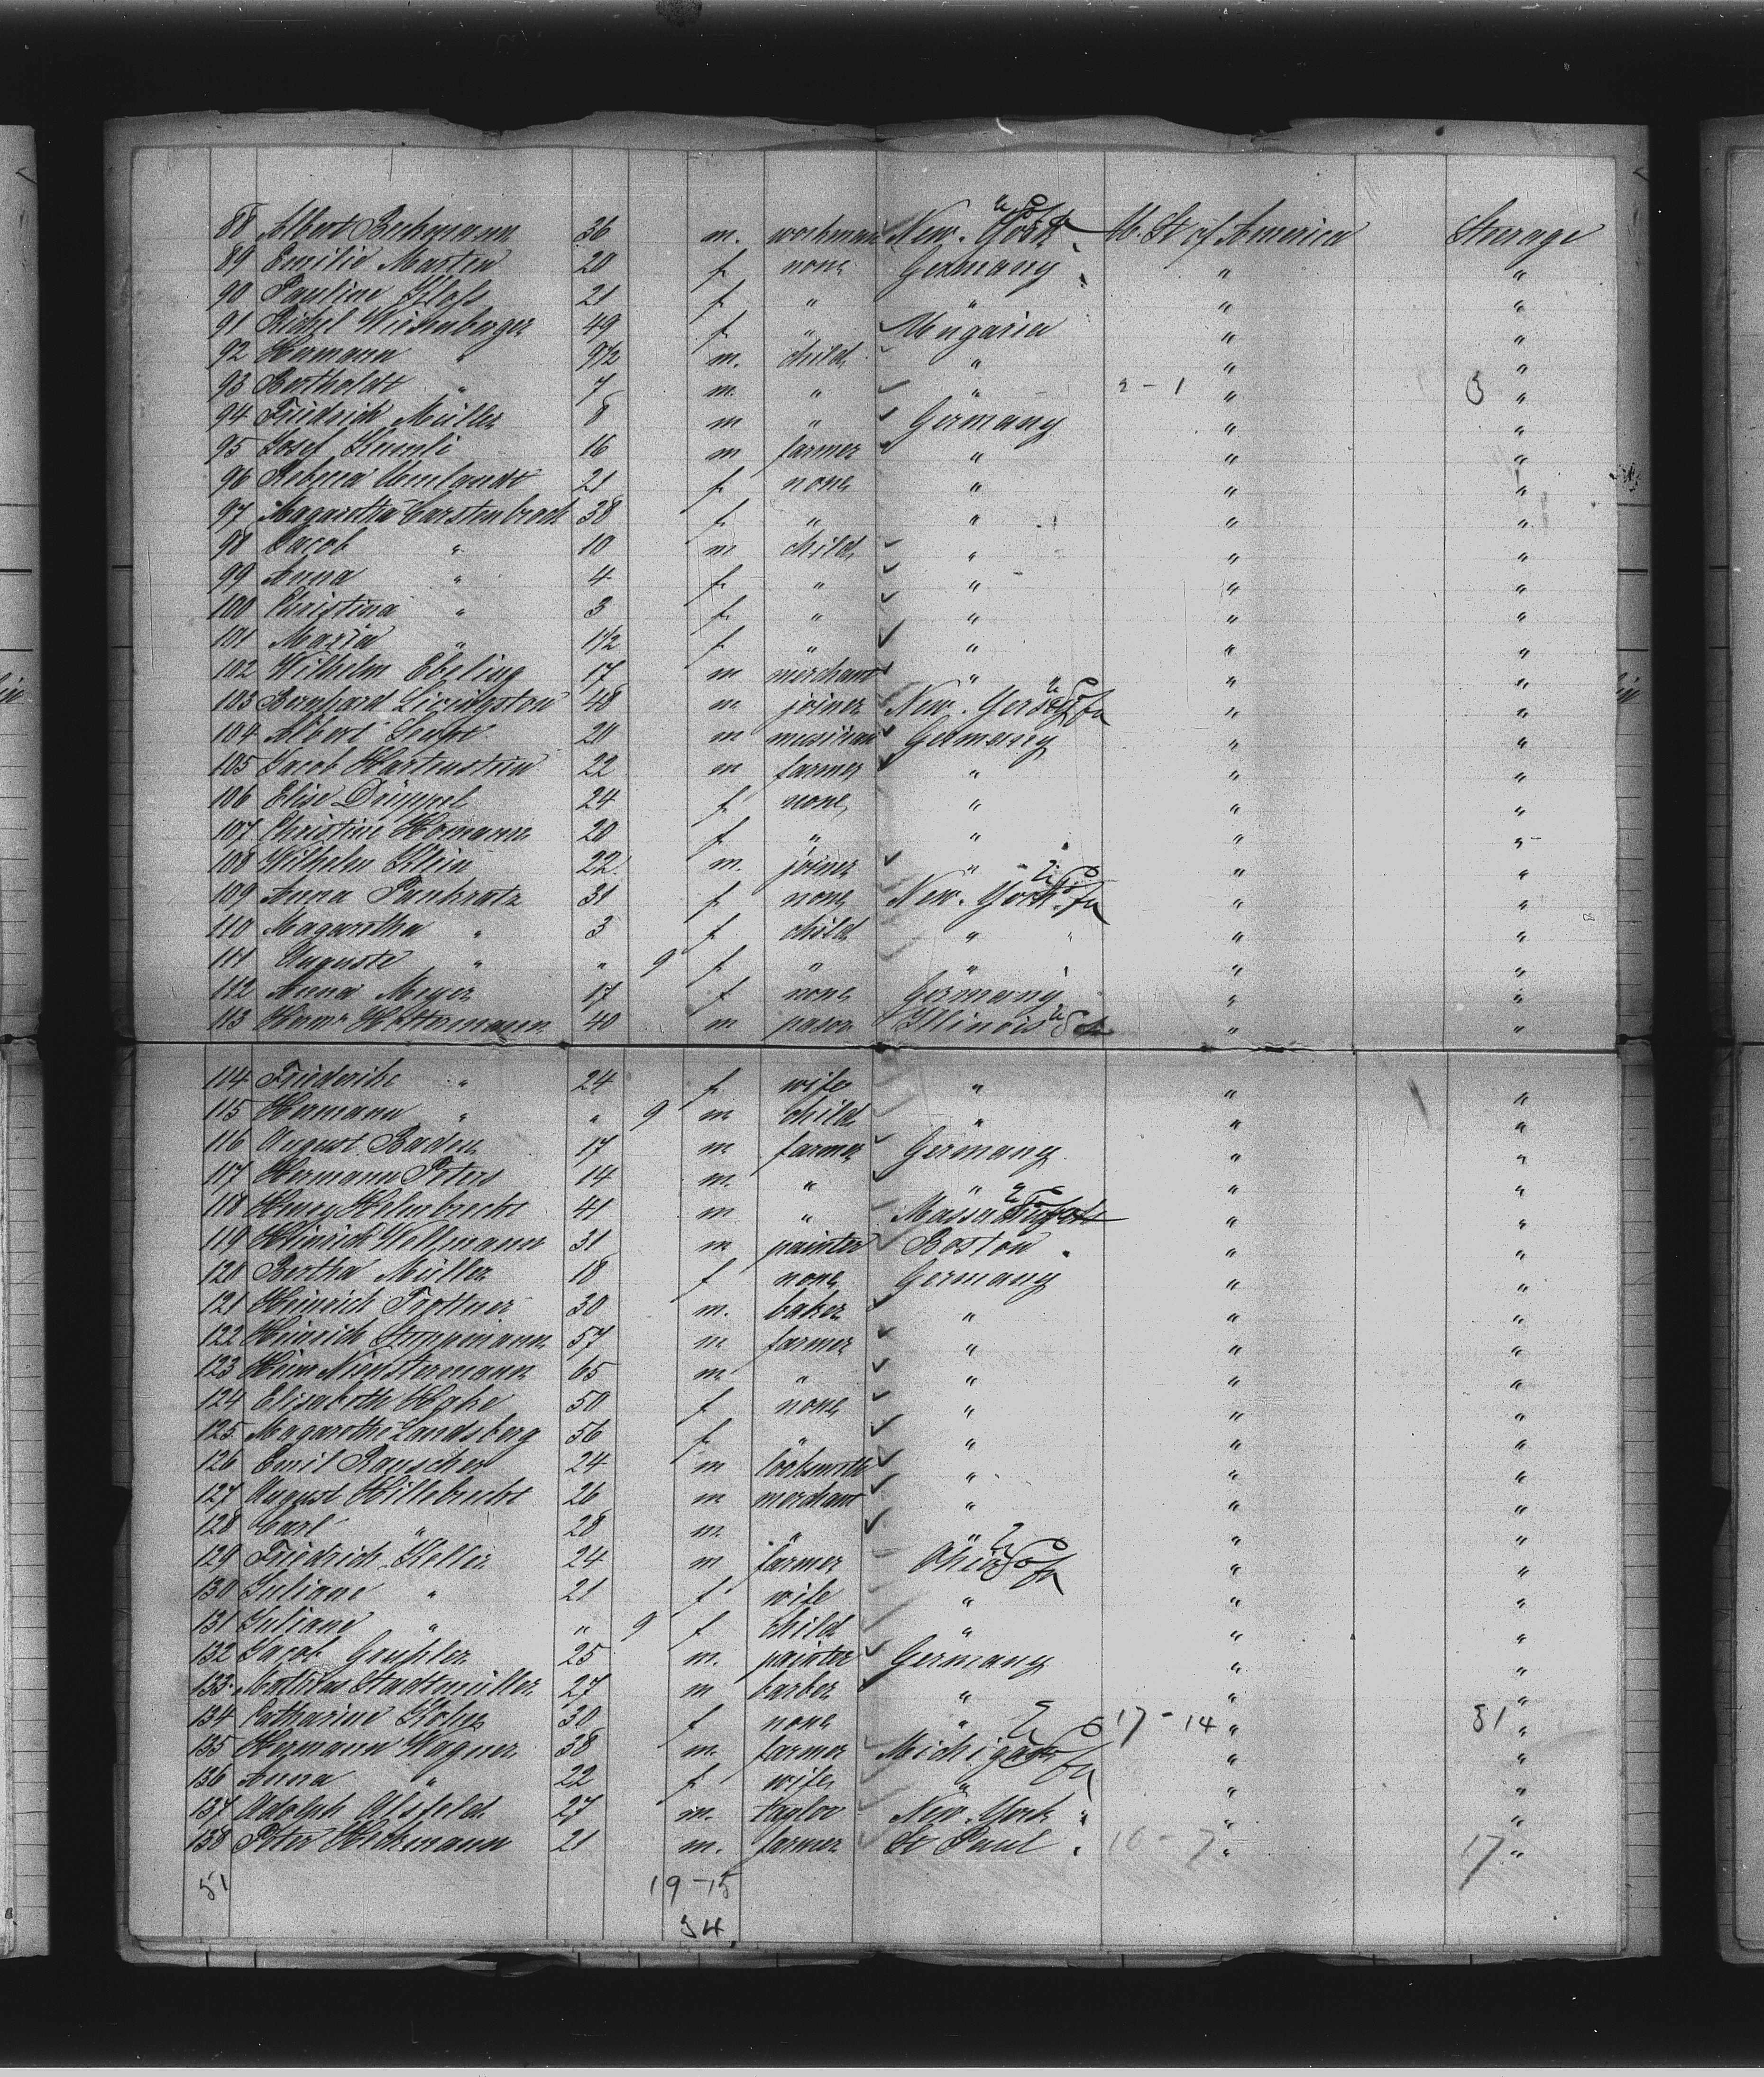 88 Albert Beckmann 36 m. workman New-York U. St of America Steerage
89 Emilie Marten 20 f none Germany " "
90 Pauline Klofs 21 f " " " "
91 Wiesenberger 49 f " Ungaria " "
92 Hermann " 9 1/2 m. child " " "
93 Bertholdt " 7 m. " " 2-1 " 3 "
94 Friedrich Müller 8 m " Germany " "
95 Josef 16 m farmer " " "
96 Umlandt 21 f none " " "
97 Magaretha Carstenbrock 38 f. " " " "
98 Jacob " 10 m child " " "
99 Anna " 4 f. " " " "
100 Christina " 3 f. " " " "
101 Maria " 1 1/2 f " " " "
102 Wilhelm Ebeling 17 m merchant " " "
103 Bernhard Livingston 48 m joiner New-Gersey " "
104 Albert 20 m musician Germany " "
105 Jacob Hartenstein 22 m farmer " " "
106 Elise Drüppel 24 f none " " "
107 Christine Homann 20 f " " " "
108 Wilhelm Klein 22. m. joiner " " "
109 Anna Pankratz 31 f none New-York " "
110 Magaretha " 3 f child " " "
111 Auguste " " 9 f " " " "
112 Anna Meyer 17 f none Germany " "
113 Herm. 40 m Illinois " "
114 Friederike " 24 f wife " " "
115 Hermann " " 9 m child " " "
116 August Baden 17 m farmer Germany " "
117 Hermann Peters 14 m. " " " "
118 Henry Helmbrecht 41 m " " "
119 Heinrich Wellmann 31 m painter Boston " "
120 Bertha Müller 18 f none Germany " "
121 Heinrich Trottner 30 m. baker " " "
122 Heinrich 57 m farmer " " "
123 65 m " " " "
124 Elisabeth Hake 50 f none " " "
125 Magarethe Landsberg 56 f " " " "
126 Emil Rauscher 24 m locksmith " " "
127 August Hillebrecht 26 m merchant " " "
128 Carl " 28 m. " " " "
129 Friedrich Keller 24 m farmer Ohio " "
130 Juliane " 21 f wife " " "
131 Juliane " " 9 f child " " "
132 Jacob 25 m. painter Germany " "
133 Mathias Stadtmüller 27 m barber " " "
134 Catharine 30 f none " 17-14 " 31 "
135 Hermann Wagner 38 m. farmer Michigan " "
136 Anna " 22 f wife " " "
137 Adolph Alsfeld 27 m. taylor New-York " "
138 Peter Heckmann 21 m. farmer St Paul 10-7 " 17 "
51 19-15
34